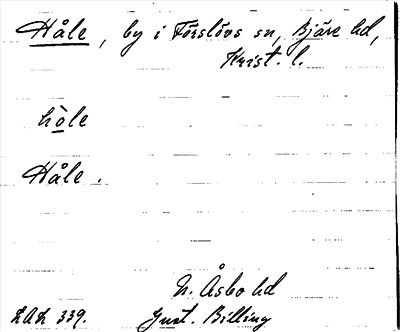 Håle, by i Förslövs sn, Bjäre hd,
Krist. l.
hòle
Håle.
N. Åsbo hd
LAL 339. Gust. Billing